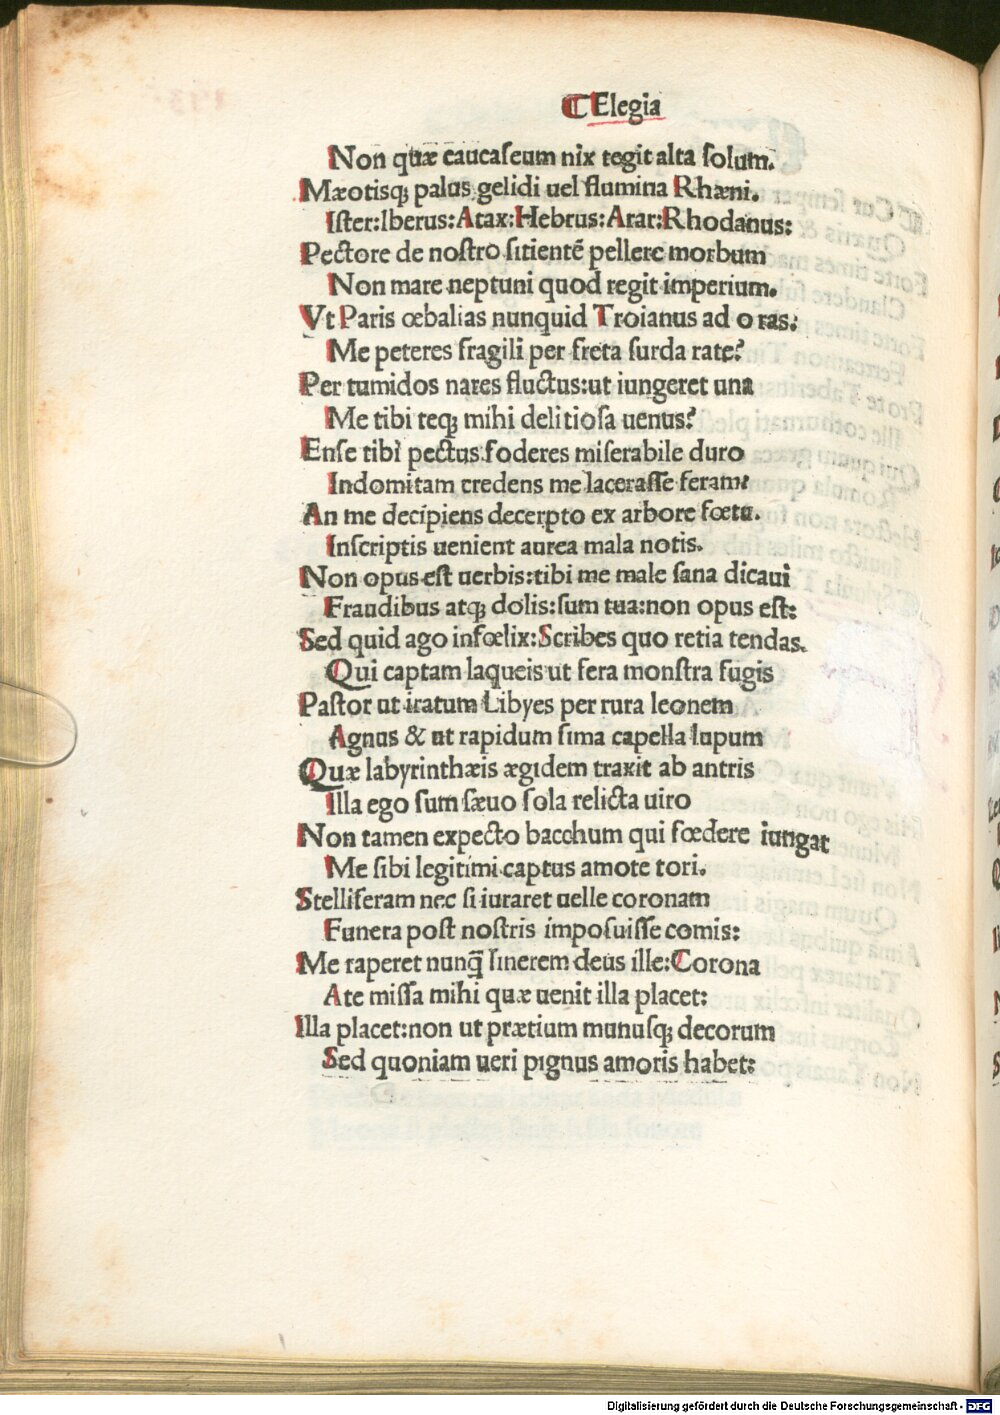 ⸿ Elegia
Non quæ caucaſeum nix tegit alta ſolum.
Mæotisq; palus gelidi uel flumina Rhæni.
Iſter:Iberus:Atax:Hebrus:Arar:Rhodanus:
Pectore de noſtro ſitientē pellere morbum
Non mare neptuni quod regit imperium.
Vt Paris œbalias nunquid Troianus ad oras:
Me peteres fragili per freta ſurda rate?
Per tumidos nares fluctus:ut iungeret una
Me tibi teq; mihi delitioſa uenus?
Enſe tibi pectus foderes miſerabile duro
Indomitam credens me laceraſſe feram?
An me decipiens decerpto ex arbore fœta.
Inſcriptis uenient aurea mala notis.
Non opus eſt uerbis:tibi me male ſana dicaui
Fraudibus atq; dolis:ſum tua:non opus eſt:
Sed quid ago infœlix:Scribes quo retia tendas.
Qui captam laqueis ut fera monſtra fugis
Paſtor ut iratum Libyes per rura leonem
Agnus & ut rapidum ſima capella lupum
Quæ labyrinthæis ægidem traxit ab antris
Illa ego ſum ſæuo ſola relicta uiro
Non tamen expecto bacchum qui fœdere iungat
Me ſibi legitimi captus amote tori.
Stelliferam nec ſi iuraret uelle coronam
Funera poſt noſtris impoſuiſſe comis:
Me raperet nunq̄ ſinerem deus ille:Corona
Ate miſſa mihi quæ uenit illa placet:
Illa placet:non ut prætium munuſq; decorum
Sed quoniam ueri pignus amoris habet:
Digitalisierung gefördert durch die Deutsche Forschungsgemeinschaft - DFG